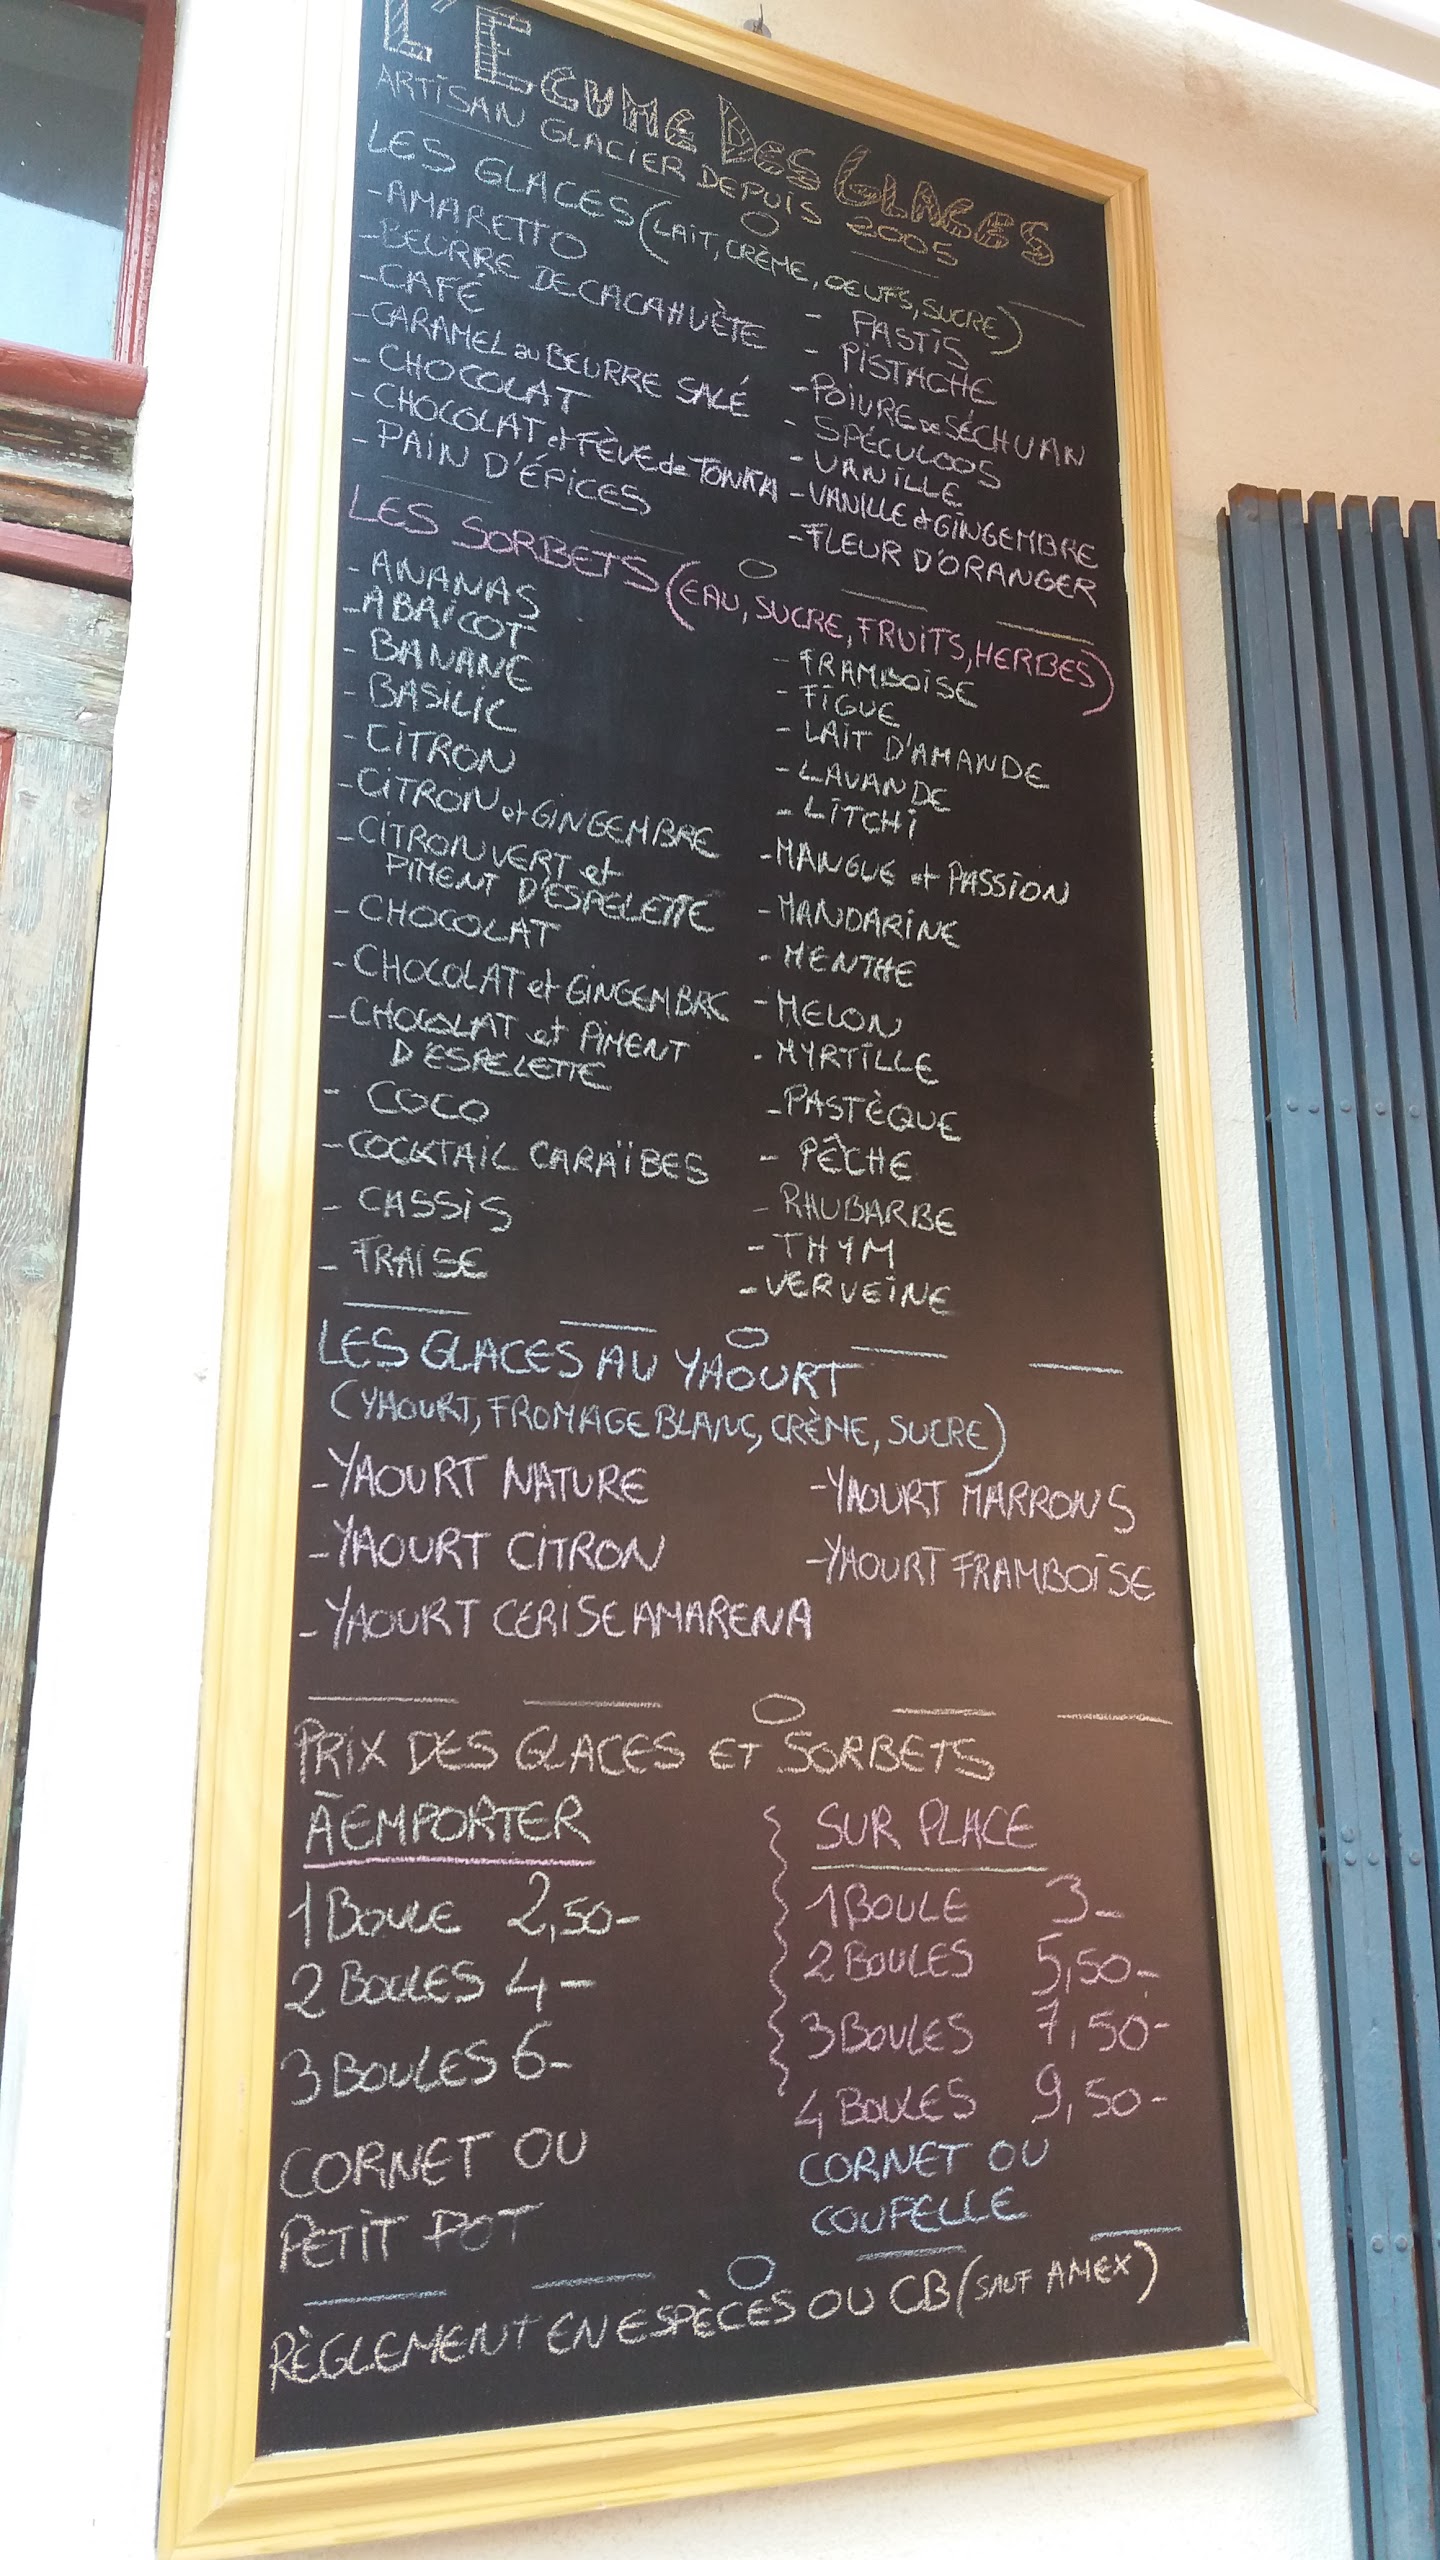 L'Ecume Des Glaces
ARTISAN GLACIER DEPUIS 2005
LES GLACES (LAIT, CRÈME, OEUFS, SUCRE)
- AMARETTO
- BEURRE DE CACAHUÈTE
- CAFÉ
- CARAMEL au BEURRE SALÉ
- CHOCOLAT
- CHOCOLAT et FÈVE de TONKA
- PAIN D'ÉPICES
- PASTIS
- PISTACHE
- POIVRE DE SÉCHUAN
- SPÉCULOOS
- VANILLE
- VANILLE et GINGEMBRE
- FLEUR D'ORANGER
LES SORBETS (EAU, SUCRE, FRUITS, HERBES)
- ANANAS
- ABRICOT
- BANANE
- BASILIC
- CITRON
- CITRON et GINGEMBRE
- CITRON VERT et
PIMENT D'ESPELETTE
- CHOCOLAT
- CHOCOLAT et GINGEMBRE
- CHOCOLAT et PIMENT
D'ESPELETTE
- COCO
- COCKTAIL CARAÏBES
- CASSIS
- FRAISE
- FRAMBOISE
- FIGUE
- LAIT D'AMANDE
- LAVANDE
- LITCHI
- MANGUE et PASSION
- MANDARINE
- MENTHE
- MELON
- MYRTILLE
- PASTÈQUE
- PÊCHE
- RHUBARBE
- THYM
- VERVEINE
LES GLACES AU YAOURT
(YAOURT, FROMAGE BLANC, CRÈME, SUCRE)
- YAOURT NATURE
- YAOURT CITRON
- YAOURT CERISE AMARENA
- YAOURT MARRONS
- YAOURT FRAMBOISE
PRIX DES GLACES ET SORBETS
À EMPORTER
1 BOULE 2,50-
2 BOULES 4-
3 BOULES 6-
CORNET OU
PETIT POT
SUR PLACE
1 BOULE 3-
2 BOULES 5,50-
3 BOULES 7,50-
4 BOULES 9,50-
CORNET OU
COUPELLE
RÈGLEMENT EN ESPÈCES OU CB (SAUF AMEX)